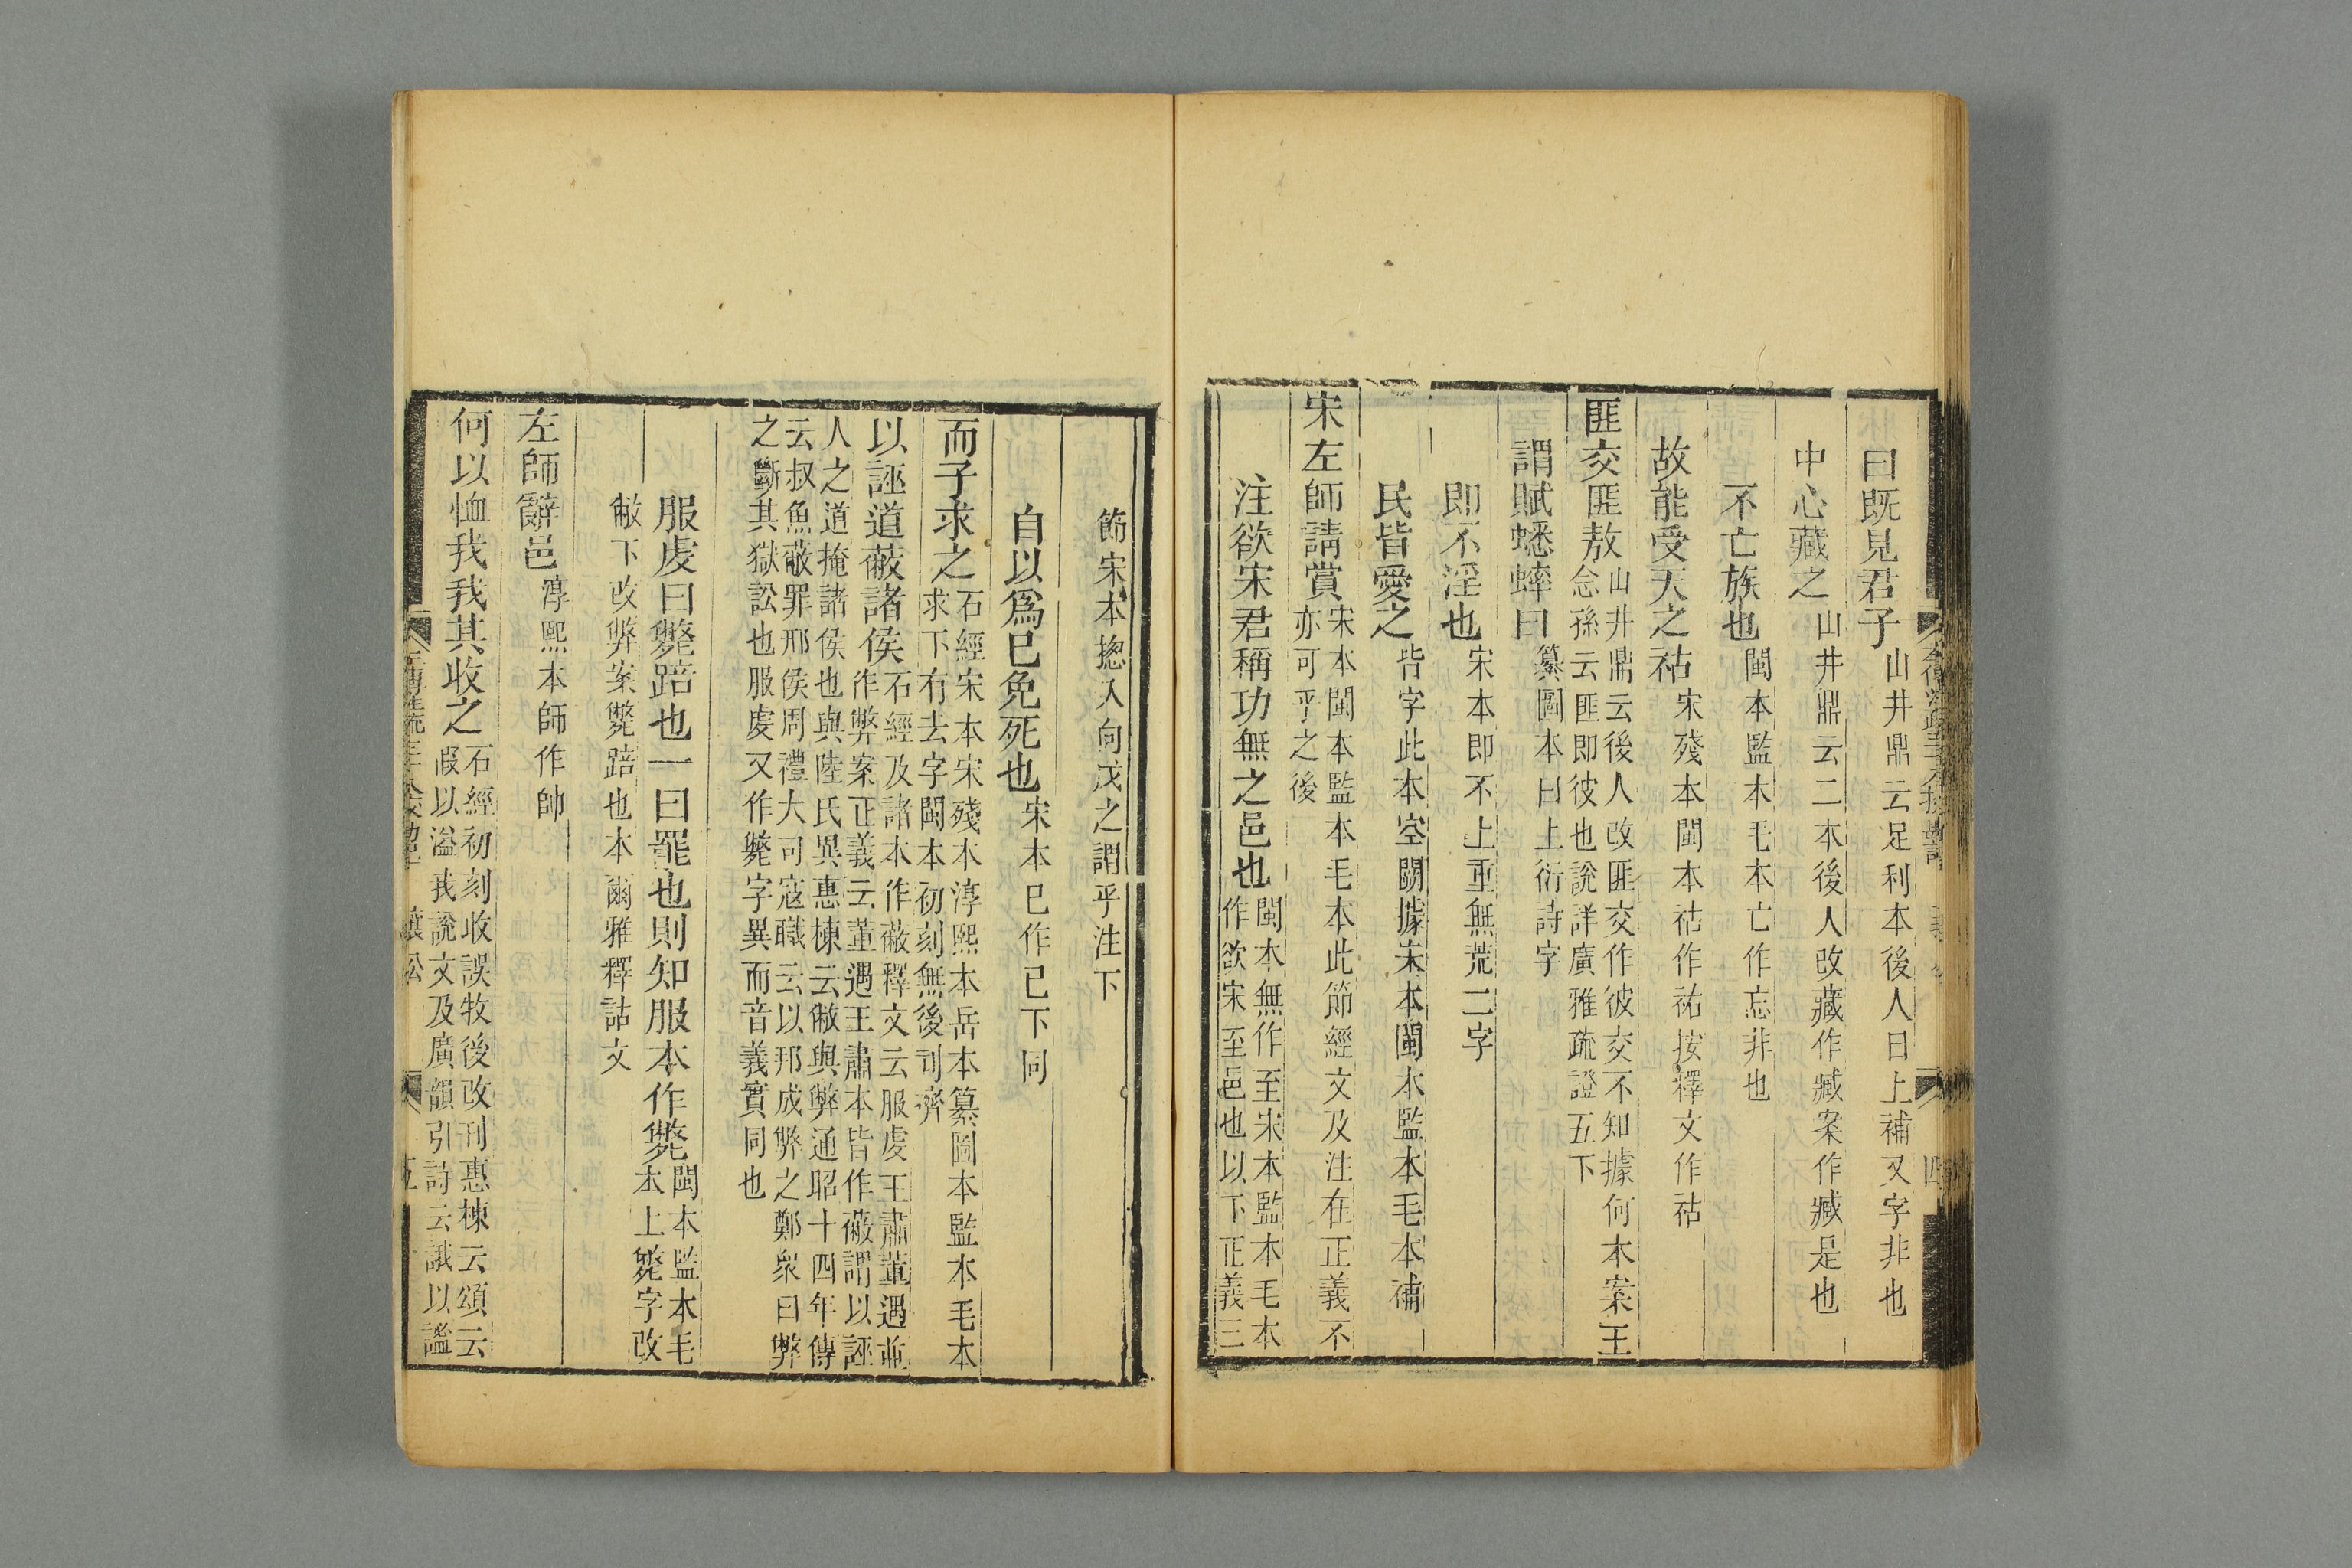 曰既見君子山井鼎云足利本後人曰上補又字非也
中心藏之山井鼎云二本後人改藏作臧案作臧是也
不亡族也閩本監本毛本亡作忘非也
故能受天之祜宋殘本閩本祜作祐按釋文作祜
匪交匪敖山井鼎云後人改匪交作彼交不知據何本案王
念孫云匪即彼也說詳廣雅疏證五下
謂賦蟋蟀曰纂圖本曰上衍詩字
即不淫也宋本即不上重無荒二字
民皆愛之皆字此本空闕據宋本閩本監本毛本補
宋左師請賞宋本閩本監本毛本此節經文及注在正義不
亦可乎之後
注欲宋君稱功無之邑也閩本無作至宋本監本毛本
作欲宋至邑也以下正義三
四
節宋本揔入向戌之謂乎注下
自以爲巳免死也宋本巳作已下同
而子求之石經宋本宋殘本淳熙本岳本纂圖本監本毛本
求下有去字閩本初刻無後刓擠
以誣道蔽諸侯石經及諸本作蔽釋文云服虔王肅董遇並
作弊案正義云董遇王肅本皆作蔽謂以誣
人之道掩諸侯也與陸氏異惠棟云敝與弊通昭十四年傳
云叔魚蔽罪邢侯周禮大司寇職云以邦成弊之鄭衆曰弊
之斷其獄訟也服虔又作斃字異而音義實同也
服虔曰斃踣也一曰罷也則知服本作斃閩本監本毛
本上斃字改
敝下改弊案斃踣也本爾雅釋詁文
左師辭邑淳熙本師作帥
何以恤我我其收之石經初刻收誤牧後改刊惠棟云頌云
假以溢我說文及廣韻引詩云誐以謐
五